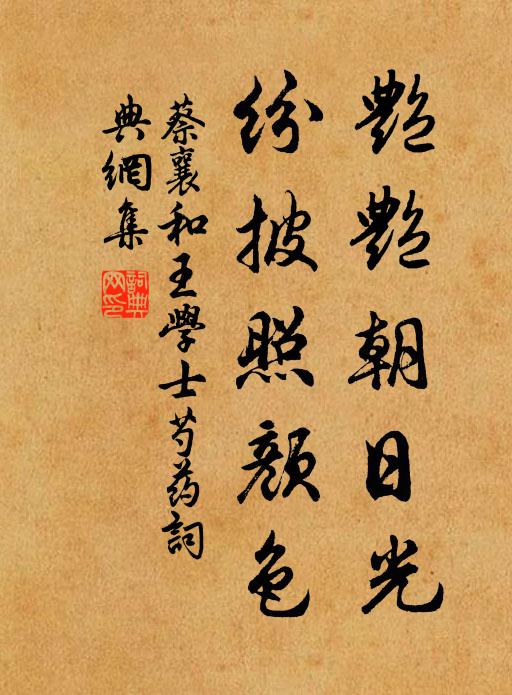 艷艷朝日光
紛披照顏色
蔡襄和王學士芍药詞
典網集
詞典网印